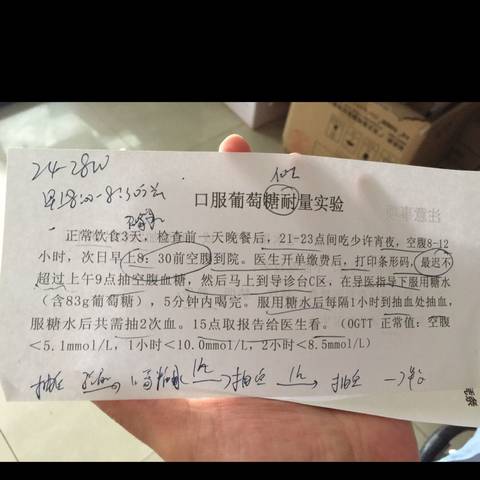 24-28W
口服葡萄糖耐量实验
正常饮食3天，检查前一天晚餐后，21-23点间吃少许宵夜，空腹8-12
小时，次日早上8：30前空腹到院。医生开单缴费后，打印条形码，最迟不
超过上午9点抽空腹血糖，然后马上到导诊台C区，在导医指导下服用糖水
（含83g葡萄糖），5分钟内喝完。服用糖水后每隔1小时到抽血处抽血，
服糖水后共需抽2次血。15点取报告给医生看。（OGTT 正常值：空腹
<5.1mmol/L，1小时<10.0mmol/L，2小时<8.5mmol/L）
抽血 喝糖水 1h 抽血 1h 抽血
注意事